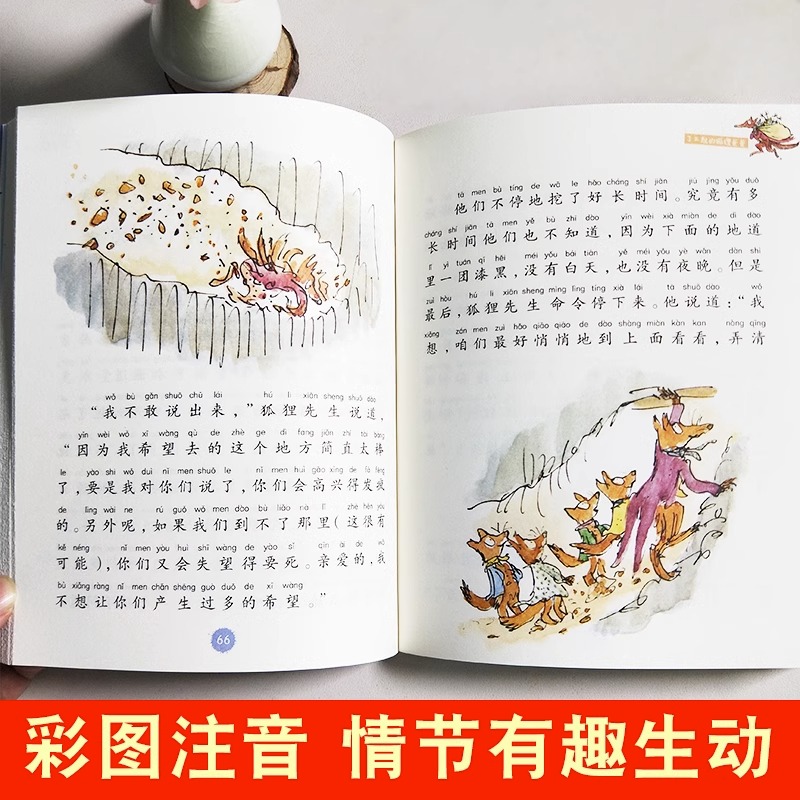 wǒ bù gǎn shuō chū lái hú li xiān sheng shuō dào
“我不敢说出来，”狐狸先生说道，
yīn wèi wǒ xī wàng qù de zhè ge dì fang jiǎn zhí tài bàng
“因为我希望去的这个地方简直太棒
le yào shi wǒ duì nǐ men shuō le nǐ men huì gāo xìng de fā fēng
了，要是我对你们说了，你们会高兴得发疯
de lìng wài ne rú guǒ wǒ men dào bù liǎo nà lǐ zhè hěn yǒu
的。另外呢，如果我们到不了那里（这很有
kě néng nǐ men yòu huì shī wàng de yào sǐ qīn ài de wǒ
可能），你们又会失望得要死。亲爱的，我
bù xiǎng ràng nǐ men chǎn shēng guò duō de xī wàng
不想让你们产生过多的希望。”
66
了不起的狐狸爸爸
tā men bù tíng de wā le hǎo cháng shí jiān jiū jìng yǒu duō
他们不停地挖了好长时间。究竟有多
cháng shí jiān tā men yě bù zhī dào yīn wèi xià miàn de dì dào
长时间他们也不知道，因为下面的地道
lǐ yì tuán qī hēi méi yǒu bái tiān yě méi yǒu yè wǎn dàn shì
里一团漆黑，没有白天，也没有夜晚。但是
zuì hòu hú li xiān sheng mìng lìng tíng xià lái tā shuō dào wǒ
最后，狐狸先生命令停下来。他说道：“我
xiǎng zán men zuì hǎo qiāo qiāo de dào shàng miàn kàn kan nòng qīng
想，咱们最好悄悄地到上面看看，弄清
彩图注音 情节有趣生动